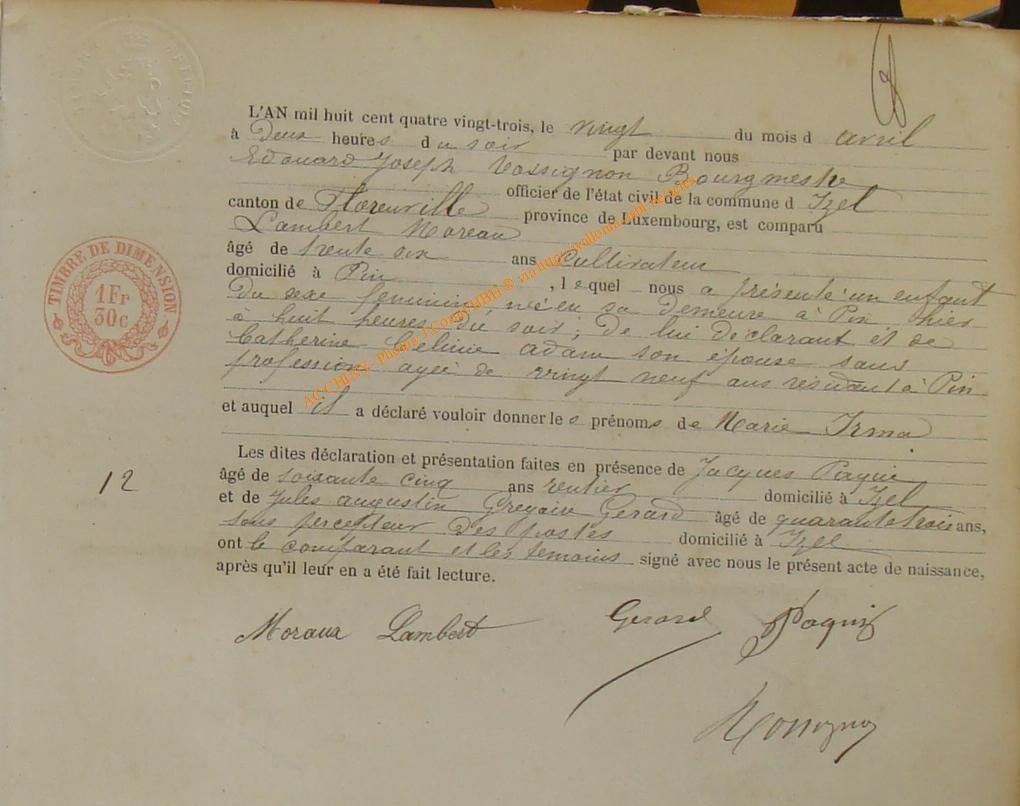 L'AN mil huit cent quatre vingt-trois, le vingt du mois d avril
à Deux heures du soir par devant nous
Edouard Joseph Rossignon Bourgmestre
officier de l'état civil de la commune d Izel
canton de Florenville province de Luxembourg, est comparu
Lambert Moreau
âgé de trente six ans Cultivateur
domicilié à Pin, lequel nous a présenté un enfant
Du sexe féminin, né en sa demeure à Pin hier
à huit heures du soir; De lui déclarant et de
Catherine Celinie adam son épouse sans
profession agée de vingt neuf ans résidant à Pin
et auquel il a déclaré vouloir donner les prénoms de Marie Irma
Les dites déclaration et présentation faites en présence de Jacques Paquis
âgé de soixante cinq ans rentier domicilié à Izel
et de Jules augustin Grégoire Gerard âgé de quarante trois ans,
sous percepteur Des postes domicilié à Izel
ont le comparant et les temoins signé avec nous le présent acte de naissance,
après qu'il leur en a été fait lecture.
12
Moraux Lambert Gerard Paquis
Rossignon
TIMBRE DE DIMENSION
1 Fr
30c